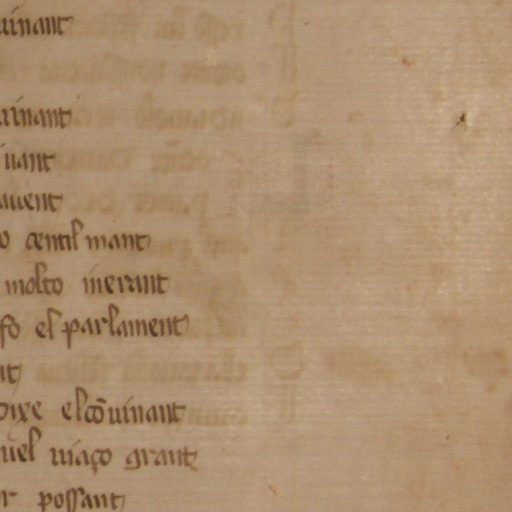 uinant
uinant
uant
auent
o centil mant
molto inerant
fo el parlament
nt
dixe el cōuinant
uel uiaço grant
r possant